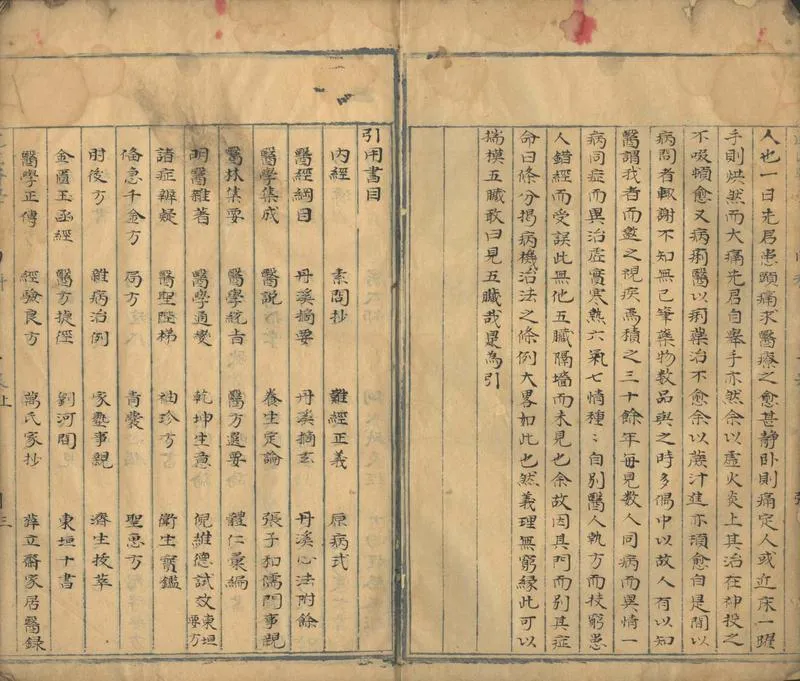 人也一日先君患頭痛求醫療之愈甚靜卧則痛定人或近床一躍
手則烘然而大痛先君自舉手亦然余以虛火炎上其治在神授之
不吸頓愈又病痢醫以痢藥治不愈余以蔑汁進亦頓愈自是間以
病問者輒謝不知無已筆藥物数品與之時多偶中以故人有以知
醫謂我者而邀之視疾焉積之三十餘年每見数人同病而異情一
病同症而異治虛實寒熱六氣七情種〻自别醫人執方而技窮患
人錯經而受誤此無他五臟隔墻而未見也余故因其門而别其症
命曰條分揭病機治法之條例大畧如此也然義理無窮緣此可以
揣模五臟敢曰見五臟哉是為引
引用書目
内經 素問抄 難經正義 原病式
醫經綱目 丹溪摘要 丹溪摘玄 丹溪心法附餘
醫學集成 醫說 養生定論 張子和儒門事親
醫林集要 醫學統吉 醫方選要 體仁彙編
明醫雜著 醫學通變 乾坤生意 倪維德試效東垣要方
諸症辨疑 醫聖階梯 袖珍方 衛生寶鑑
俻急千金方 局方 青囊 聖惠方
肘後方 雜病治例 家塾事親 濟生拔萃
金匱玉函經 醫方捷徑 劉河間 東垣十書
醫學正傳 經驗良方 萬氏家抄 薛立齋家居醫録